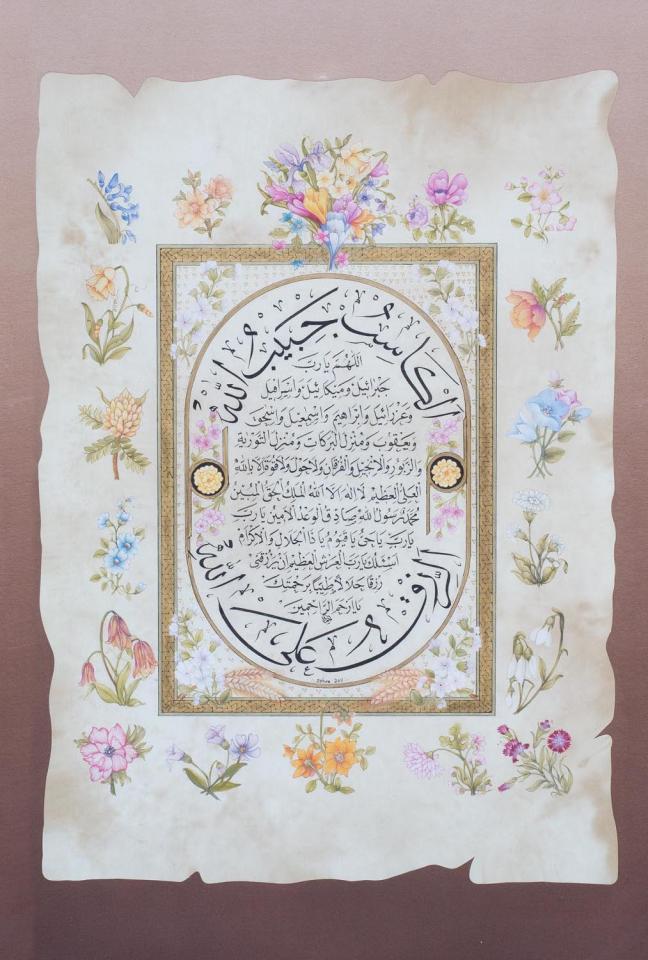 الكاسب حبيب الله
اللهم يا رب
جبرائيل وميكائيل واسرافيل
وعزرائيل وابراهيم واسمعيل واسحق
ويعقوب ومنزل البركات ومنزل التورية
والزبور والانجيل والفرقان ولا حول ولا قوة الا بالله
العلي العظيم لا اله الا الله الملك الحق المبين
محمد رسول الله صادق الوعد الامين يا رب
يا رب يا حي يا قيوم يا ذا الجلال والاكرام
اسئلك يا رب العرش العظيم ان ترزقني
رزقا حلالا طيبا برحمتك
يا ارحم الراحمين
الرزق على الله